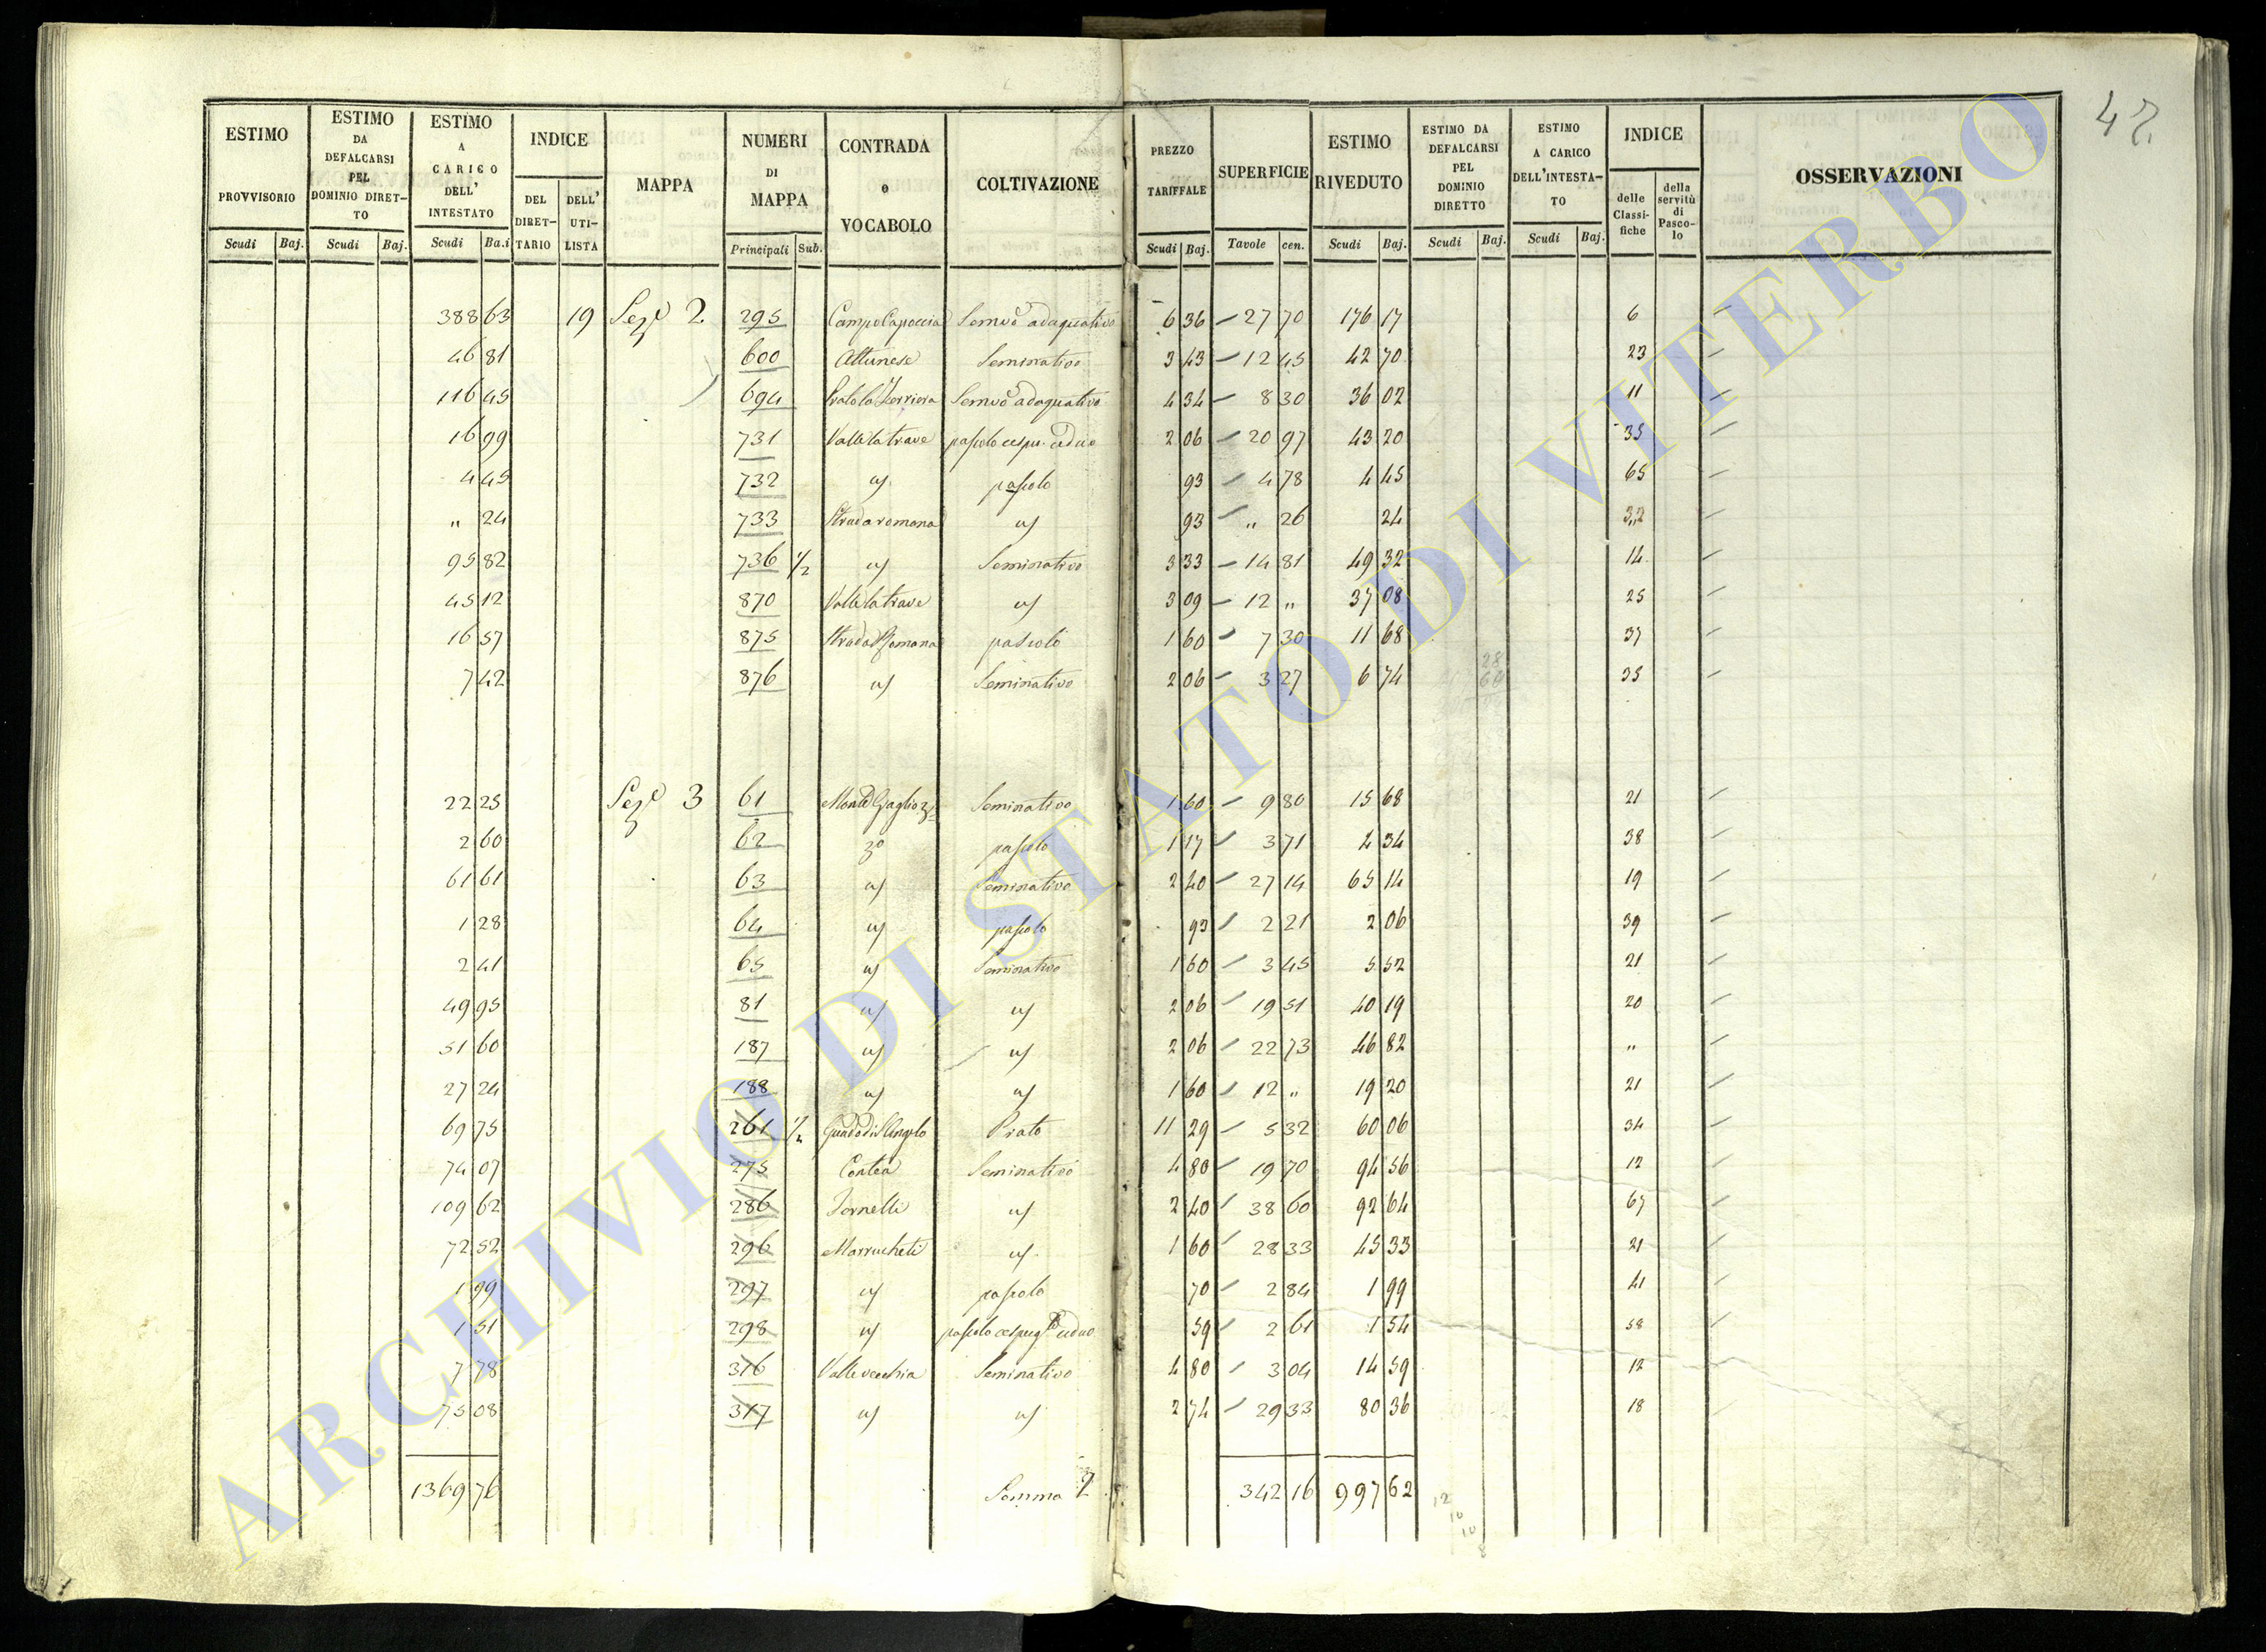 42
ESTIMO PROVVISORIO
ESTIMO DA DEFALCARSI PEL DOMINIO DIRET-TO
ESTIMO A CARICO DELL' INTESTATO
INDICE
DEL DIRET-TARIO
DELL' UTI-LISTA
MAPPA
NUMERI DI MAPPA
CONTRADA e VOCABOLO
COLTIVAZIONE
PREZZO TARIFFALE
SUPERFICIE
ESTIMO RIVEDUTO
ESTIMO DA DEFALCARSI PEL DOMINIO DIRETTO
ESTIMO A CARICO DELL'INTESTA-TO
INDICE
delle Classi-fiche
della servitù di Pasco-lo
OSSERVAZIONI
Scudi Baj. Scudi Baj. Scudi Ba.i Principali Sub. Scudi Baj. Tavole cen. Scudi Baj. Scudi Baj. Scudi Baj.
388 63 19 Sez.e 2 295 Campo Capoccia Semvo adaquativo 6 36 – 27 70 176 17 6
46 81 600 Attunese Seminativo 3 43 – 12 45 42 70 23
116 45 694 Semvo adaquativo 4 34 – 8 30 36 02 11
16 99 731 Valle la trave pascolo cespu. ceduo 2 06 – 20 97 43 20 35
4 45 732 " pascolo 93 – 4 78 4 45 65
" 24 733 Strada romana " 93 – " 26 24
95 82 736 1/2 " Seminativo 3 33 – 14 81 49 32 14
45 12 870 Valle la trave " 3 09 – 12 " 37 08 25
16 57 875 Strada Romana pascolo 1 60 – 7 30 11 68 37
7 42 876 " Seminativo 2 06 – 3 27 6 74 35
22 25 Sez.e 3 61 Monte Gaglioz= Seminativo 1 60 – 9 80 15 68 21
2 60 62 zo pascolo 1 17 – 3 71 4 34 38
61 61 63 " Seminativo 2 40 – 27 14 65 14 19
1 28 64 " pascolo 93 – 2 21 2 06 39
2 41 65 " Seminativo 1 60 – 3 45 5 52 21
49 95 81 " " 2 06 – 19 51 40 19 20
51 60 187 " " 2 06 – 22 73 46 82 "
27 24 188 " " 1 60 – 12 " 19 20 21
69 75 261 1/2 Guado di l'Angelo Prato 11 29 – 5 32 60 06 34
74 07 275 Contea Seminativo 4 80 – 19 70 94 56 12
109 62 286 Fornelli " 2 40 – 38 60 92 64 67
72 52 296 Marrucheti " 1 60 – 28 33 45 33 21
1 99 297 " pascolo 70 – 2 84 1 99 41
1 51 298 " pascolo cespugto ceduo 59 – 2 61 1 54 58
7 78 316 Valle vecchia Seminativo 4 80 – 3 04 14 59 12
75 08 317 " " 2 74 – 29 33 80 36 18
1369 76 Somma 342 16 997 62
ARCHIVIO DI STATO DI VITERBO